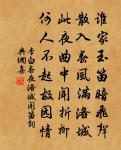 誰家玉笛暗飛聲
散入春風滿洛城
此夜曲中聞折柳
何人不起故園情
李白春夜洛城聞笛